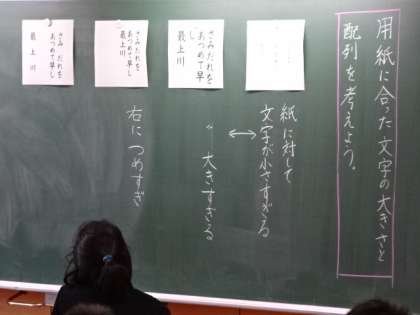 用紙に合った文字の大きさと
配列を考えよう。
紙に対して
文字が小さすぎる
↔
〃 大きすぎる
右につめすぎ
さみだれを
あつめて早し
最上川
さみだれを
あつめて早し
最上川
さみだれを
あつめて早し
最上川